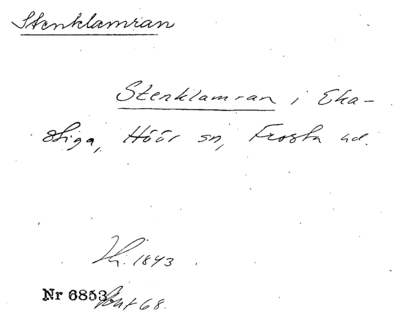 Stenklamran
Stenklamran i Eka-
stiga, Höör sn, Frosta hd.
1843
Nr 6853
68.